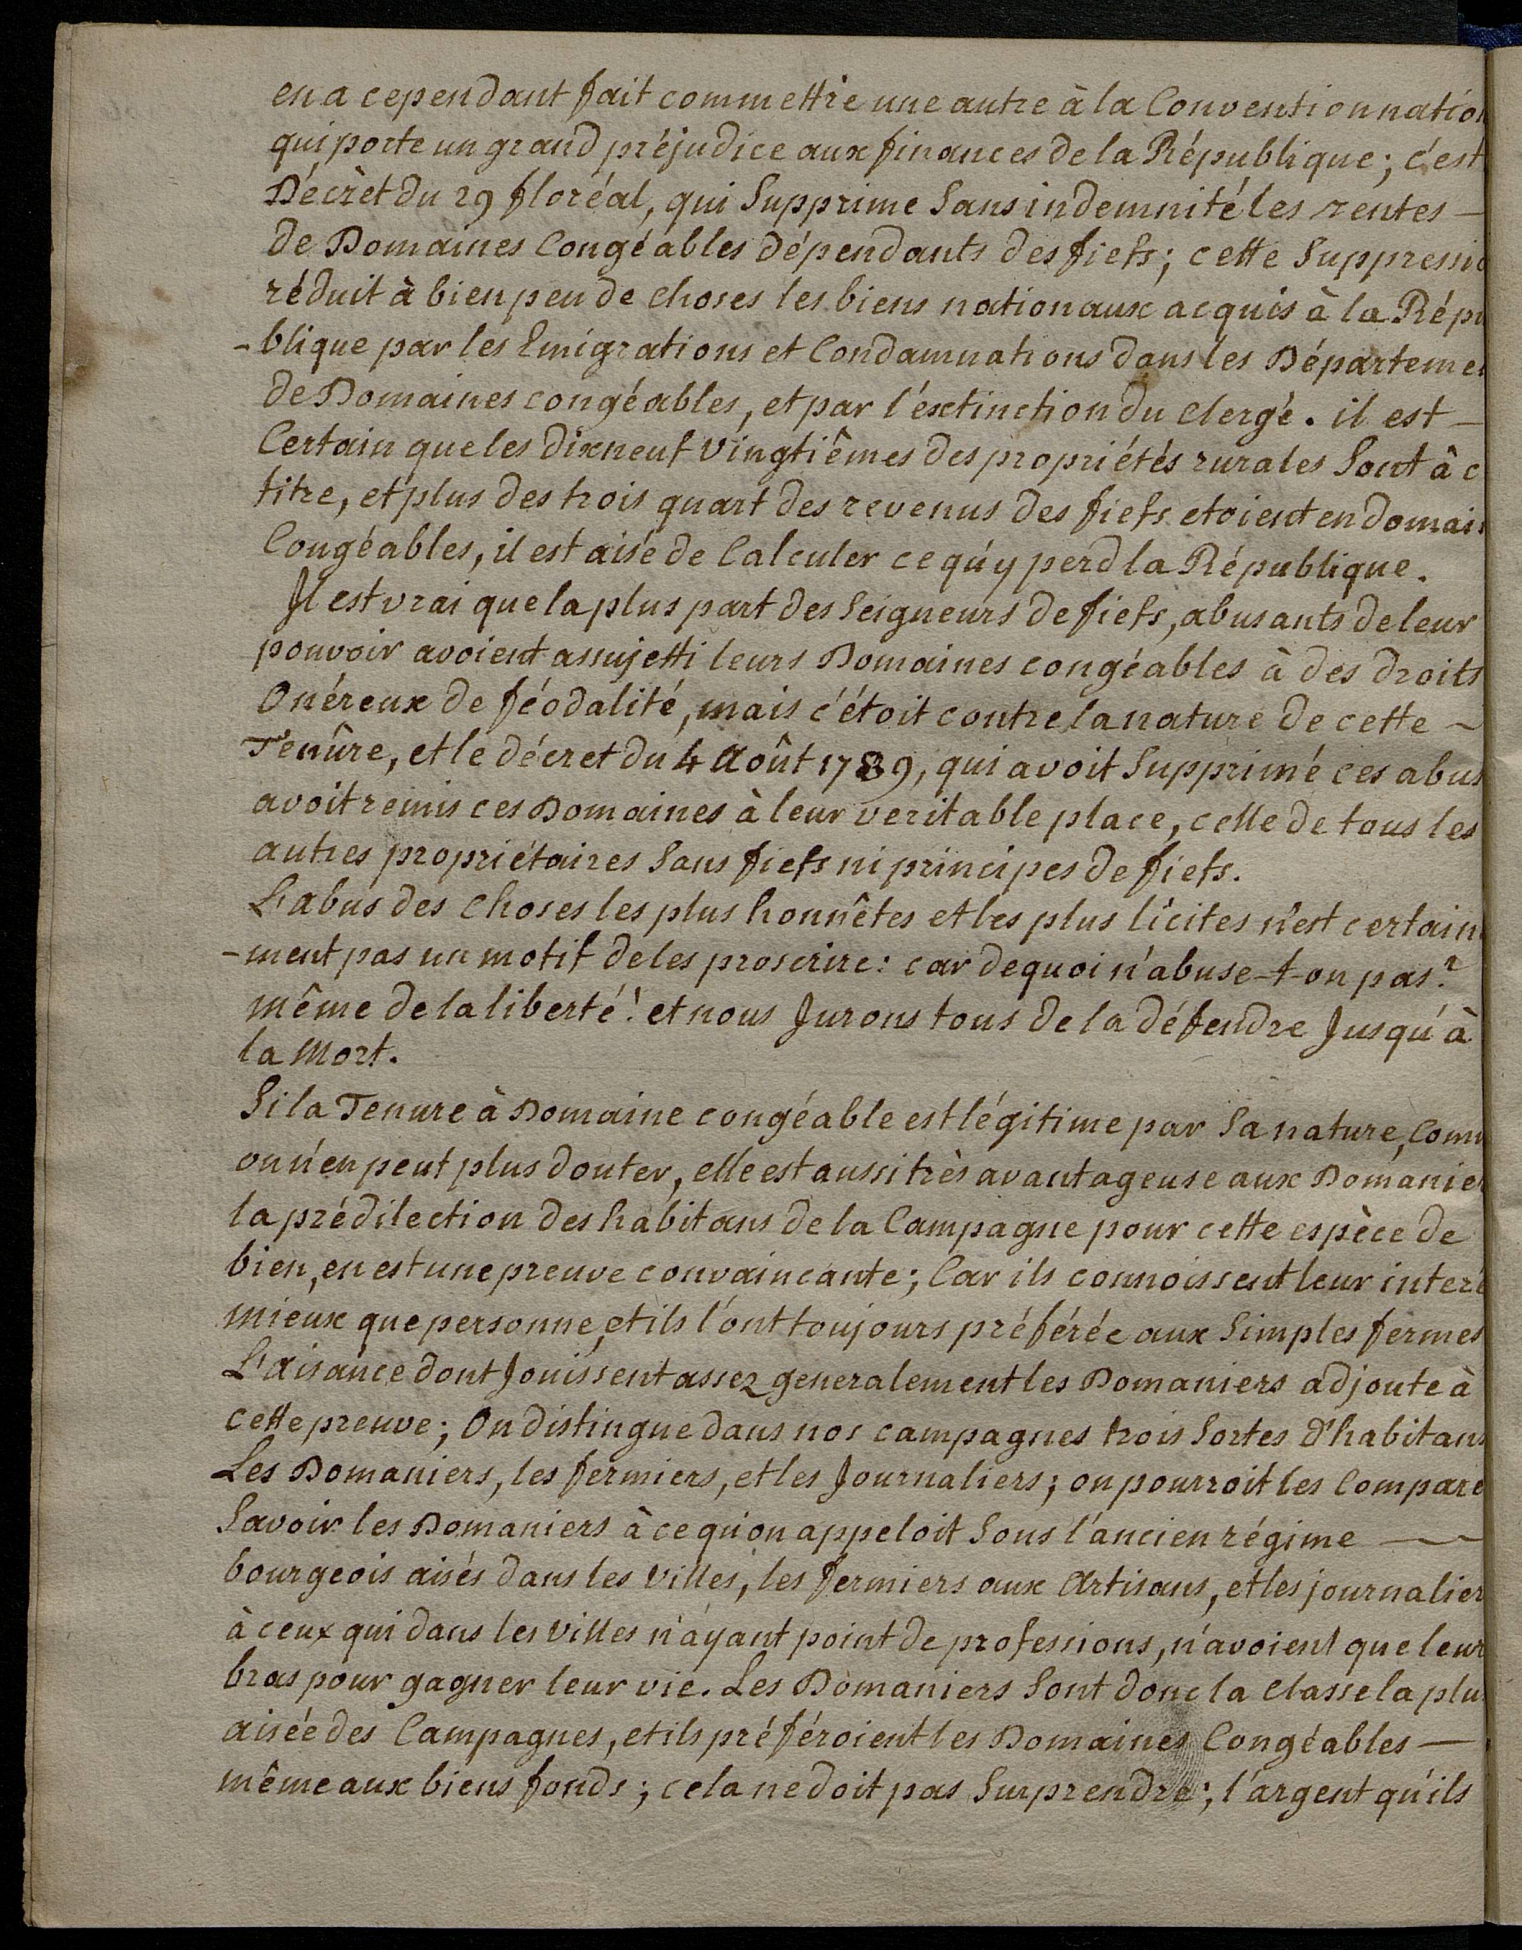 en a cependant fait commettre une autre à la Convention nation
qui porte un grand préjudice aux finances de la République; c'est
Décret du 29 floréal, qui Supprime Sans indemnité les rentes —
de Domaines Congéables dépendants des fiefs; cette Suppressio
réduit à bien peu de choses les biens nationaux acquis à la Répu
-blique par les Emigrations et Condamnations dans les Départemen
de Domaines congéables, et par l'extinction du Clergé. il est —
Certain que les dixneuf Vingtiêmes des propriétés rurales Sont à c
titre, et plus des trois quart des revenus des fiefs etoient en domain
Congéables, il est aisé de Calculer ce qu'y perd la République.
Il est vrai que la plus part des Seigneurs de fiefs, abusants de leur
pouvoir avoient assujetti leurs Domaines congéables à des droits
Onéreux de féodalité, mais c'étoit contre la nature de cette ~
Tenûre, et le décret du 4 Août 1789, qui avoit Supprimé ces abus
avoit remis ces Domaines à leur veritable place, celle de tous les
autres propriétaires Sans fiefs ni principes de fiefs.
L'abus des choses les plus honnêtes et les plus licites n'est certain
-ment pas un motif de les proscrire: car dequoi n'abuse-t-on pas?
même de la liberté! et nous Jurons tous de la défendre Jusqu'à
la Mort.
Si la Tenure à Domaine congéable est légitime par Sa nature, Comm
on n'en peut plus douter, elle est aussi très avantageuse aux Domanier
la prédilection des habitans de la Campagne pour cette espèce de
bien, en est une preuve convaincante; Car ils connoissent leur interê
mieux que personne, et ils l'ont toujours préférée aux Simples fermes
L'aisance dont Jouissent assez generalement les Domaniers adjoute à
cette preuve; On distingue dans nos campagnes trois Sortes d'habitans
Les Domaniers, les fermiers, et les Journaliers; on pourroit les Compare
Savoir les Domaniers à ce qu'on appeloit Sous l'ancien régime —
bourgeois aisés dans les Villes, les fermiers aux Artisans, et les journalier
à ceux qui dans les Villes n'ayant point de professions, n'avoient que leur
bras pour gagner leur vie. Les Domaniers Sont donc la Classe la plu
aisée des Campagnes, et ils préféroient les Domaines Congéables —
même aux biens fonds; cela ne doit pas Surprendre; l'argent qu'ils